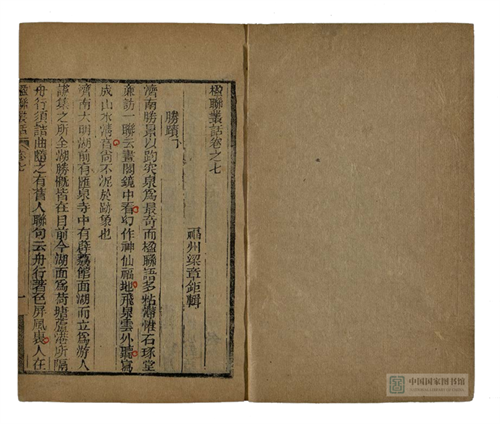 楹聯叢話卷之七
福州梁章鉅輯
勝蹟下
濟南勝景以趵突泉為最奇而楹聯語多粘滯惟石琢堂
廉訪一聯云畫閣鏡中看幻作神仙福地飛泉雲外聽寫
成山水清音尚不泥於跡象也
濟南大明湖前有匯泉寺中有薜荔館面湖而立為游人
讌集之所全湖勝概皆在目前今湖面為荷塘蘆港所隔
舟行須詰曲隨之有舊人聯句云舟行著色屏風裏人在
楹聯叢話 卷七 一
中国国家图书馆
NATIONAL LIBRARY OF CHINA